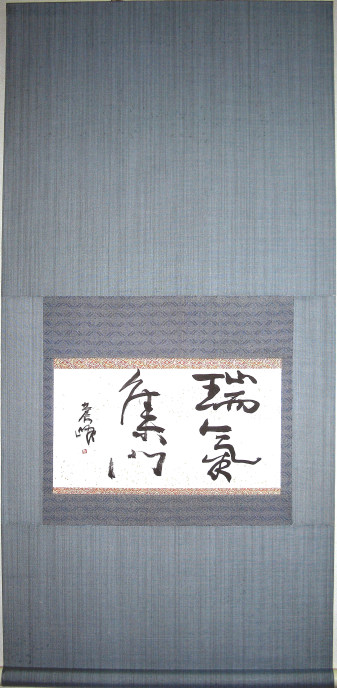 瑞氣
集門